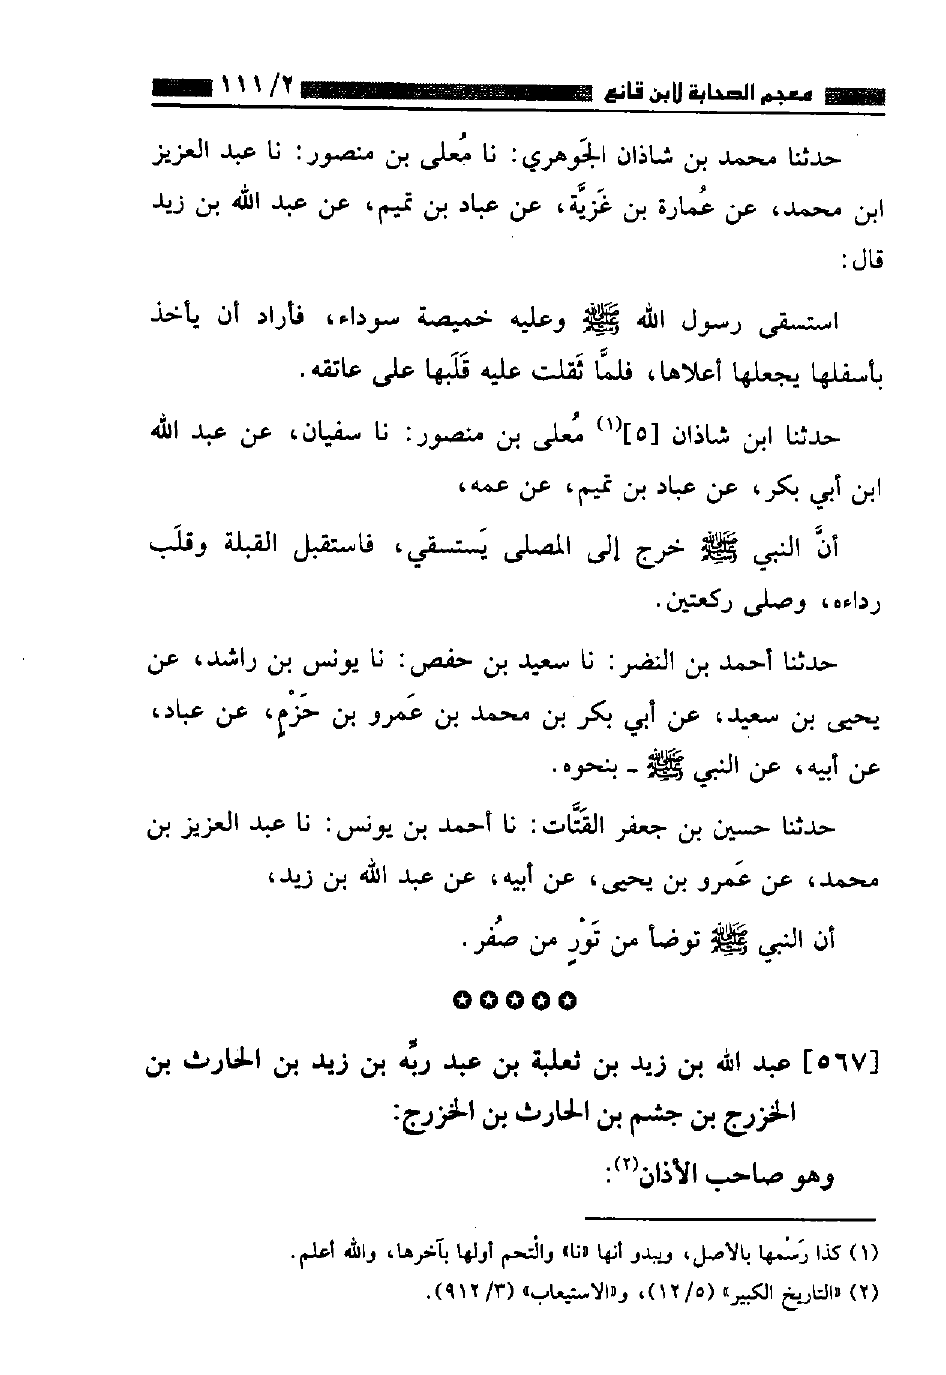 معجم الصحابة لابن قانع ٢/ ١١١
حدثنا محمد بن شاذان الجَوهري: نا مُعلى بن منصور: نا عبد العزيز
ابن محمد، عن عُمارة بن غَزيَّة، عن عباد بن تميم، عن عبد الله بن زيد
قال:
استسقى رسول الله ﷺ وعليه خميصة سوداء، فأراد أن يأخذ
بأسفلها يجعلها أعلاها، فلمَّا ثَقلت عليه قَلَبها على عاتقه.
حدثنا ابن شاذان [٥](١) مُعلى بن منصور: نا سفيان، عن عبد الله
ابن أبي بكر، عن عباد بن تميم، عن عمه،
أنَّ النبي ﷺ خرج إلى المصلى يَستسقي، فاستقبل القبلة وقلَب
رداءه، وصلى ركعتين.
حدثنا أحمد بن النضر: نا سعيد بن حفص: نا يونس بن راشد، عن
يحيى بن سعيد، عن أبي بكر بن محمد بن عَمرو بن حَزْمٍ، عن عباد،
عن أبيه، عن النبي ﷺ - بنحوه.
حدثنا حسين بن جعفر القَتَّات: نا أحمد بن يونس: نا عبد العزيز بن
محمد، عن عَمرو بن يحيى، عن أبيه، عن عبد الله بن زيد،
أن النبي ﷺ توضأ من تَوْرٍ من صُفر.
✪✪✪✪✪
[٥٦٧] عبد الله بن زيد بن ثعلبة بن عبد ربِّه بن زيد بن الحارث بن
الخزرج بن جشم بن الحارث بن الخزرج:
وهو صاحب الأذان(٢):
(١) كذا رَسْمها بالأصل، ويبدو أنها «نا» والْتحم أولها بآخرها، والله أعلم.
(٢) «التاريخ الكبير» (٥/ ١٢)، و«الاستيعاب» (٣/ ٩١٢).